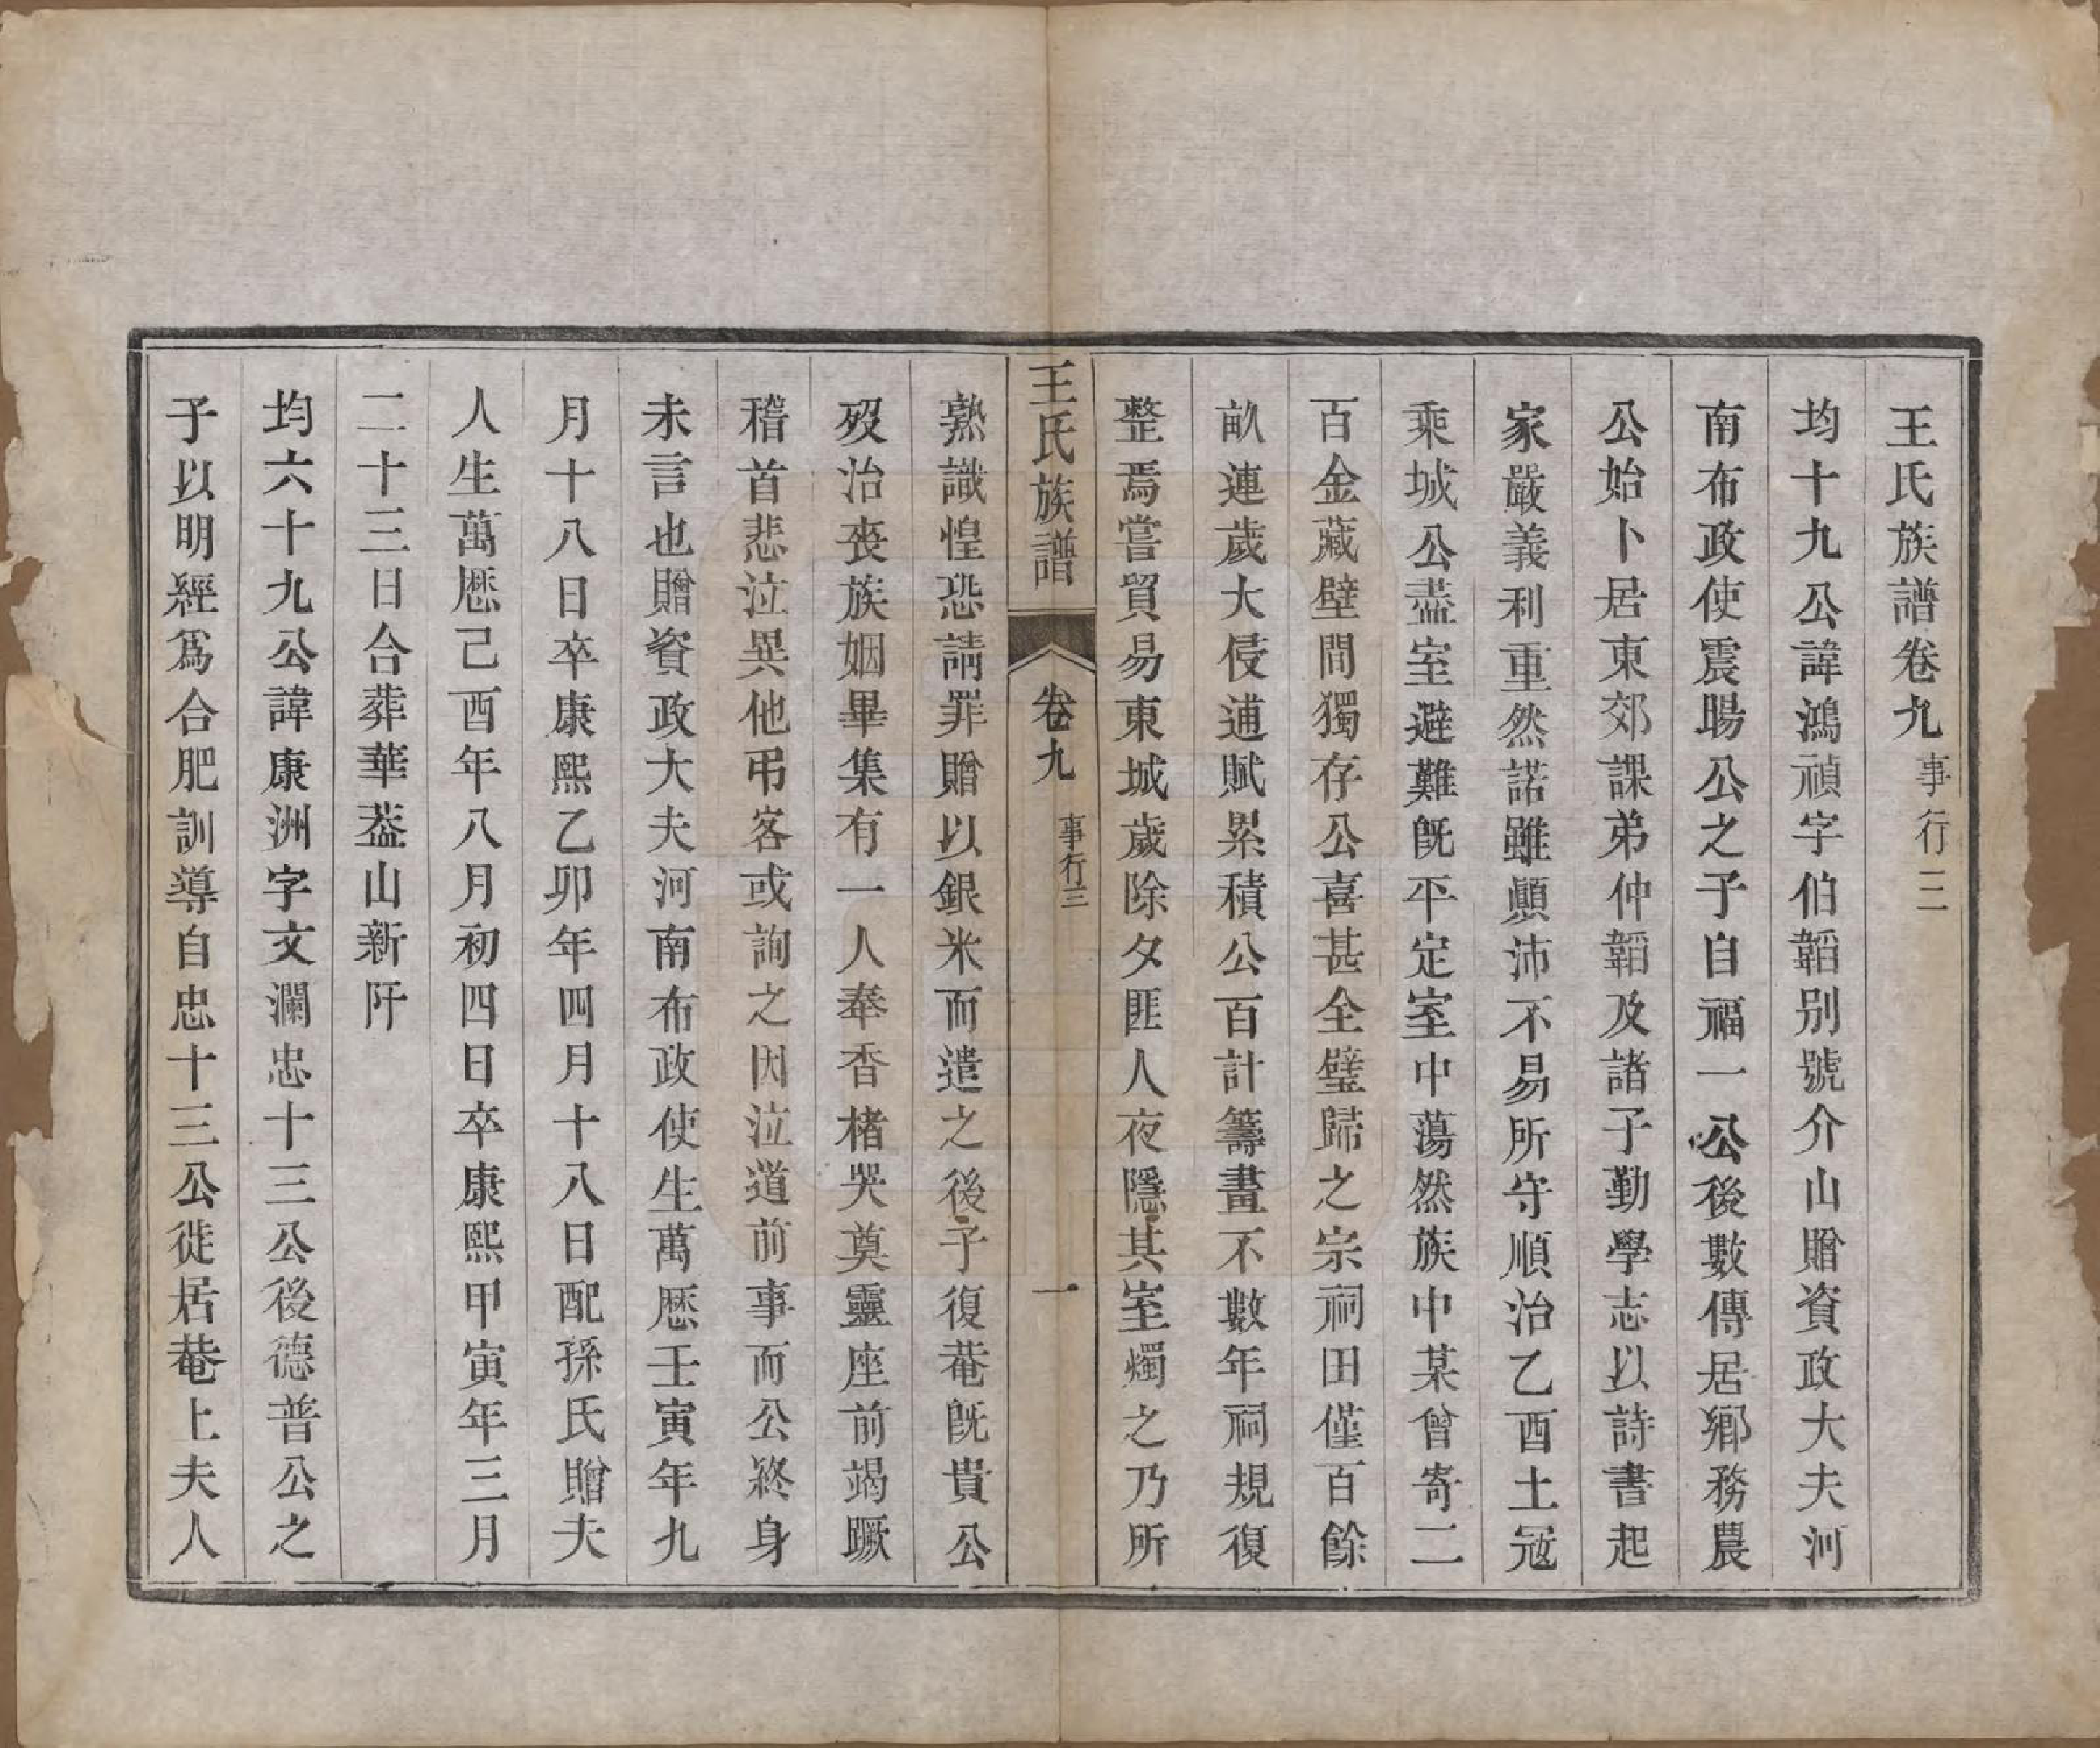 王氏族譜卷九 事行三
均十九公諱鴻禎字伯韜別號介山贈資政大夫河
南布政使震暘公之子自福一公後數傳居鄉務農
公始卜居東郊課弟仲韜及諸子勤學志以詩書起
家嚴義利重然諾雖顚沛不易所守順治乙酉土冦
乘城公盡室避難旣平定室中蕩然族中某曾寄二
百金藏壁間獨存公喜甚全璧歸之宗祠田僅百餘
畝連歲大侵逋賦累積公百計籌畫不數年祠規復
整焉嘗貿易東城歲除夕匪人夜隱其室燭之乃所
王氏族譜 卷九 事行三 一
熟識惶恐請罪贈以銀米而遣之後予復菴旣貴公
歿治喪族姻畢集有一人奉香楮哭奠靈座前竭蹶
稽首悲泣異他弔客或詢之因泣道前事而公終身
未言也贈資政大夫河南布政使生萬厯壬寅年九
月十八日卒康熙乙卯年四月十八日配孫氏贈夫
人生萬厯己酉年八月初四日卒康熙甲寅年三月
二十三日合葬華葢山新阡
均六十九公諱康洲字文瀾忠十三公後德普公之
子以明經爲合肥訓導自忠十三公徙居菴上夫人